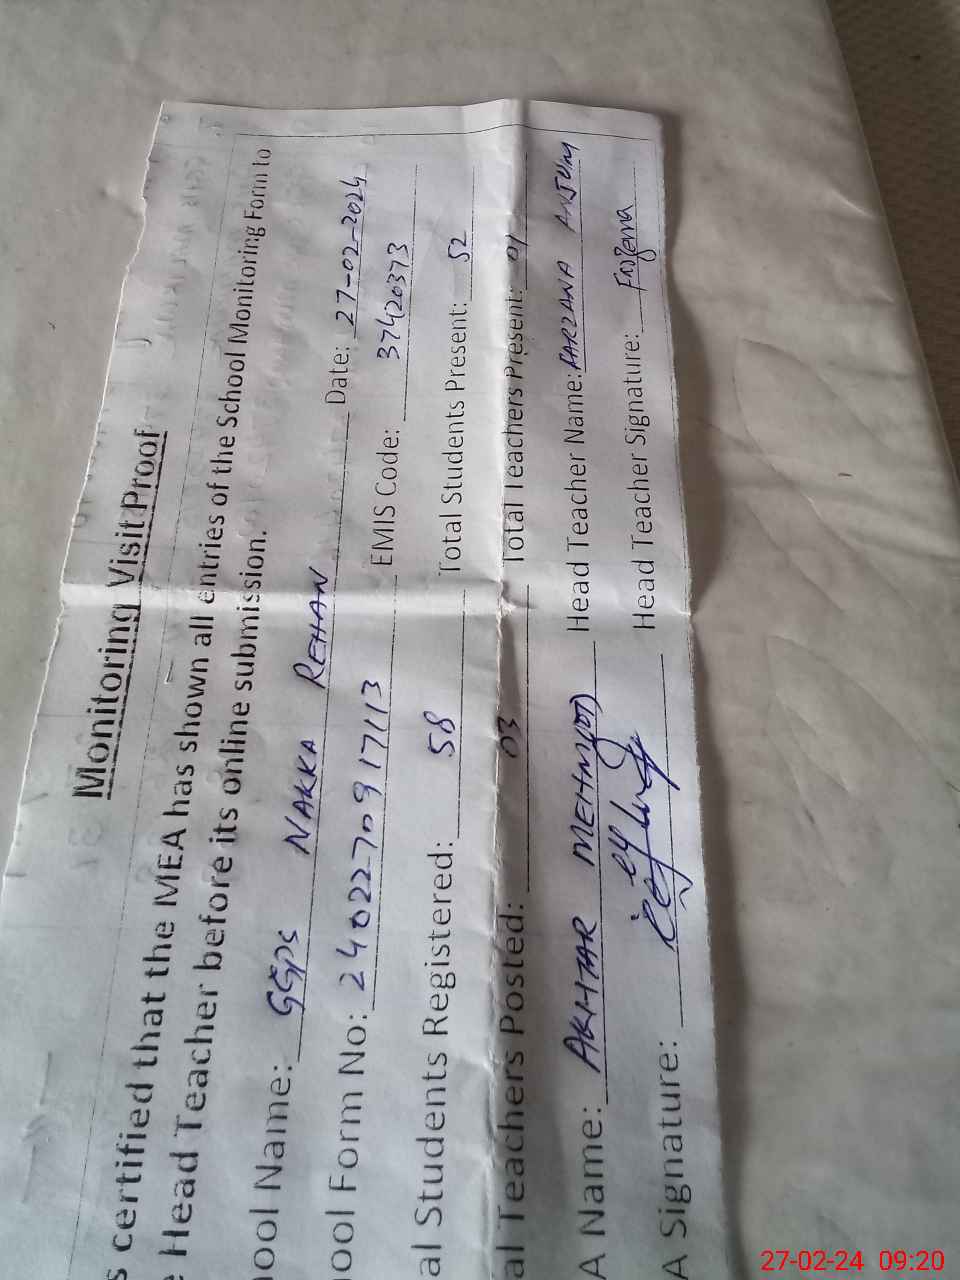 Monitoring Visit Proof
s certified that the MEA has shown all entries of the School Monitoring Form to
e Head Teacher before its online submission.
hool Name: GGPS NAKKA REHAN Date: 27-02-2024
hool Form No: 24022709 17113 EMIS Code: 37420373
al Students Registered: 58 Total Students Present: 52
al Teachers Posted: 03 Total Teachers Present: 01
A Name: AKHTAR MEHMOOD Head Teacher Name: FARZANA ANJUM
A Signature: Head Teacher Signature:
27-02-24 09:20